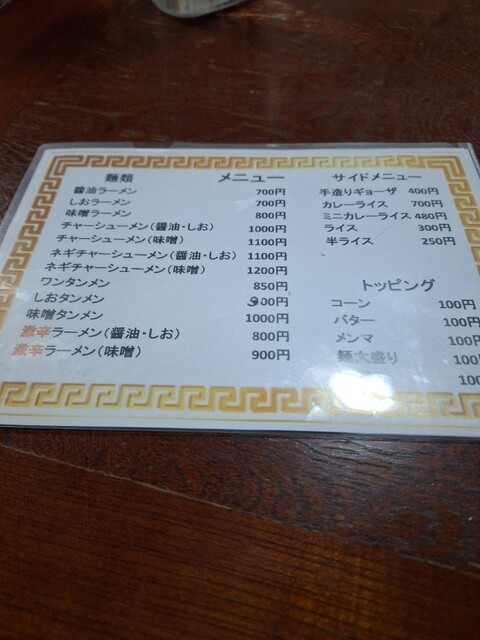 メニュー
麺類
醤油ラーメン 700円
しおラーメン 700円
味噌ラーメン 800円
チャーシューメン(醤油・しお) 1000円
チャーシューメン(味噌) 1100円
ネギチャーシューメン(醤油・しお) 1100円
ネギチャーシューメン(味噌) 1200円
ワンタンメン 850円
しおタンメン 900円
味噌タンメン 1000円
激辛ラーメン(醤油・しお) 800円
激辛ラーメン(味噌) 900円
サイドメニュー
手造りギョーザ 400円
カレーライス 700円
ミニカレーライス 480円
ライス 300円
半ライス 250円
トッピング
コーン 100円
バター 100円
メンマ 100円
麺大盛り 100
100